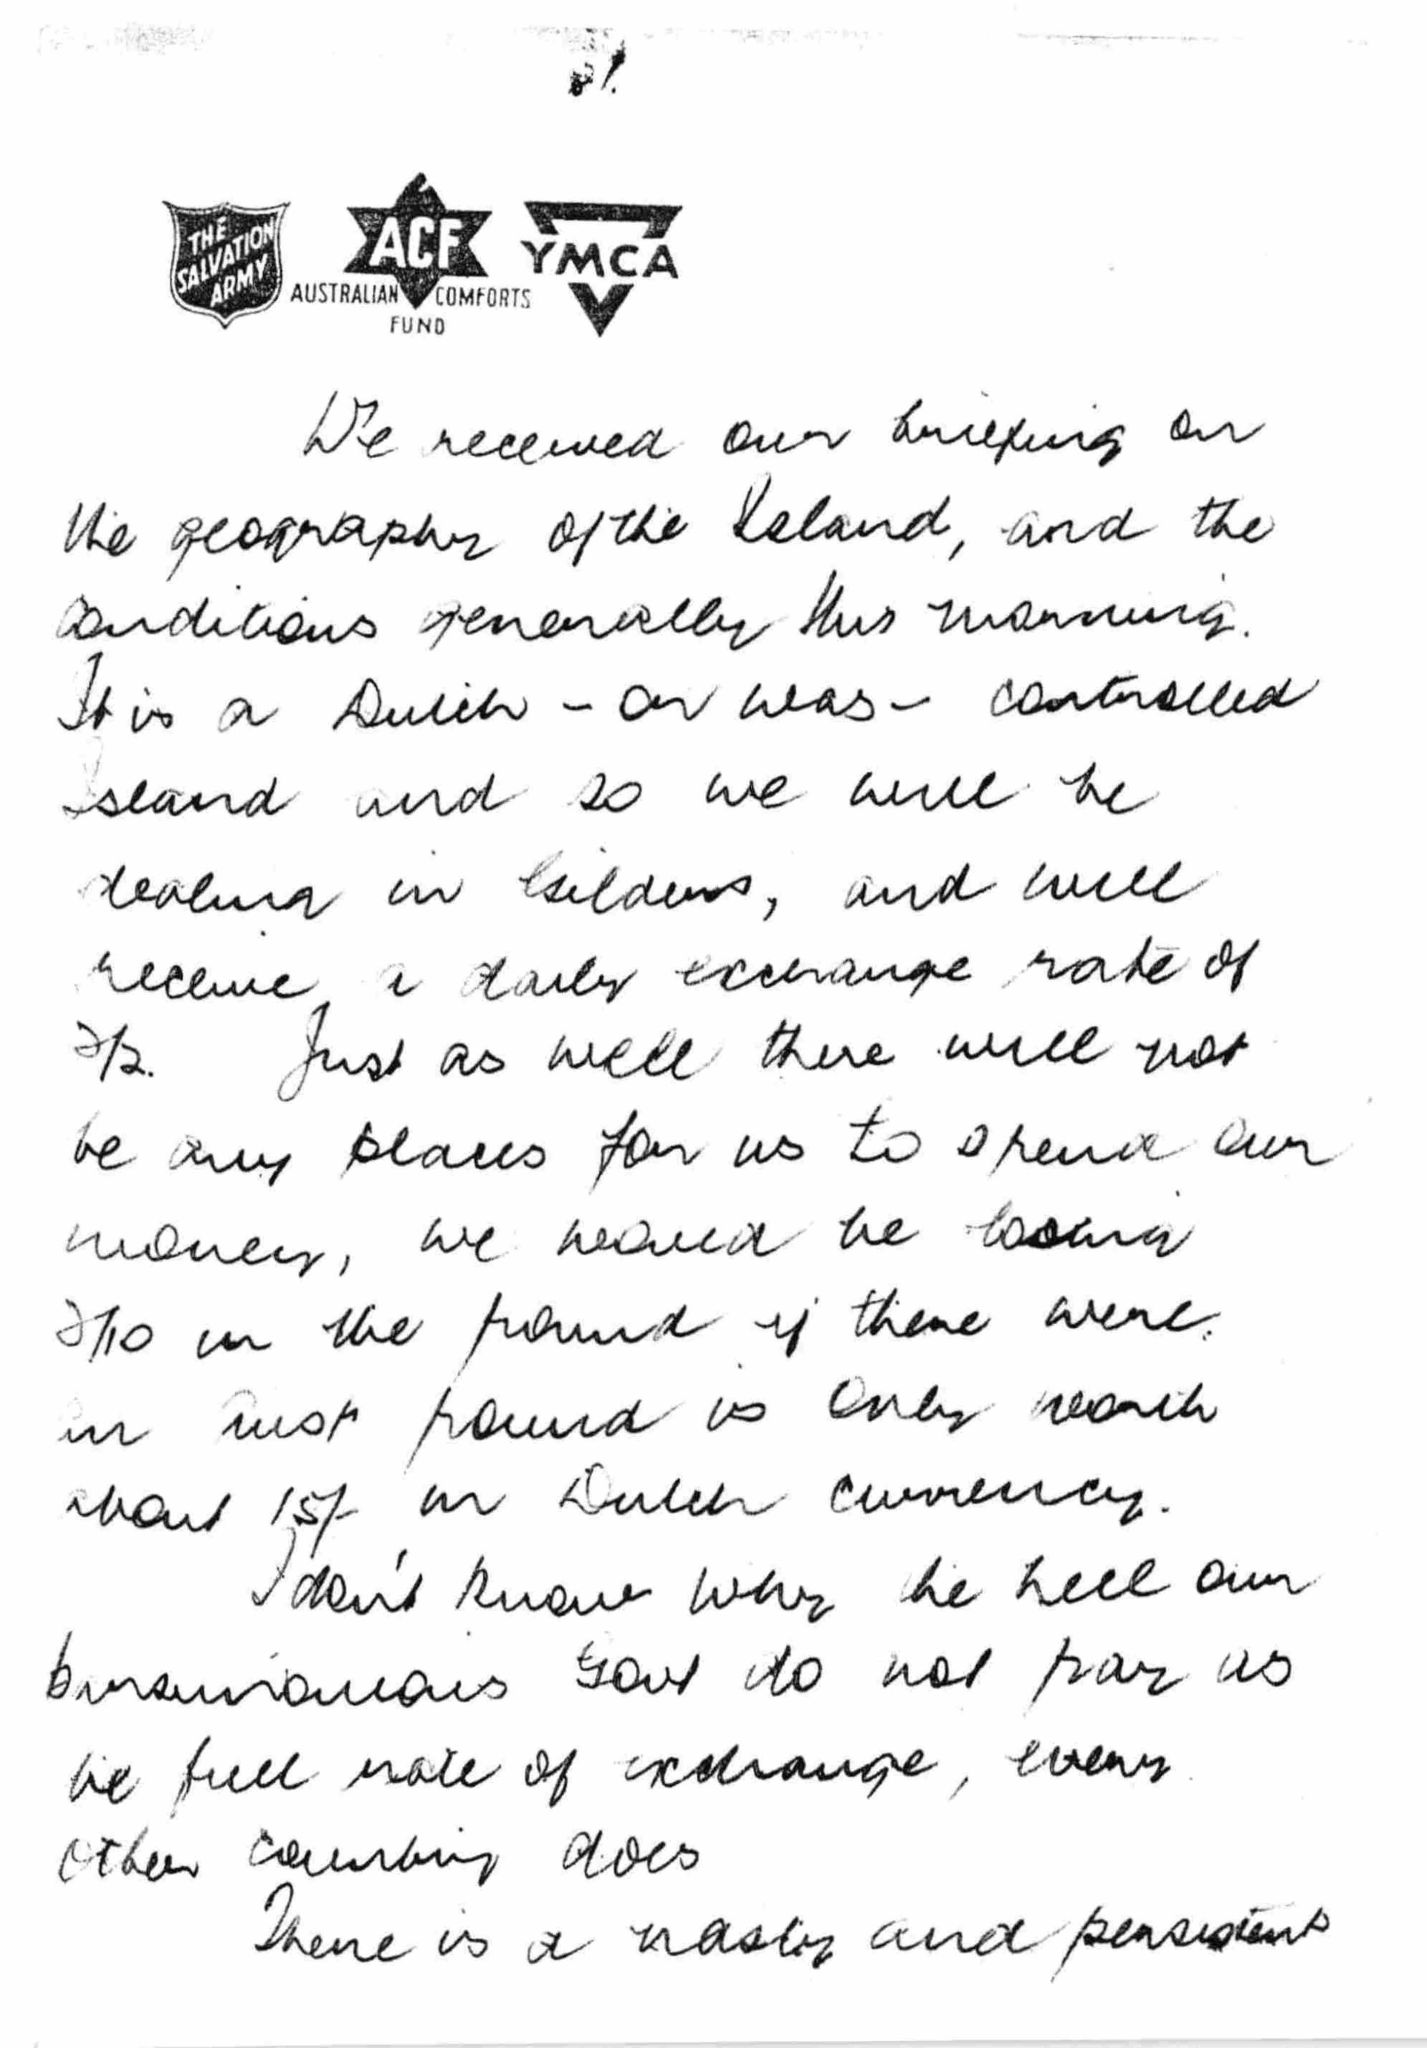 THE SALVATION ARMY
ACF
AUSTRALIAN COMFORTS FUND
YMCA
We received our briefing on
the geography of the Island, and the
conditions generally this morning.
It is a Dutch - or was - controlled
Island and so we will be
dealing in Gilders, and will
receive a daily exchange rate of
2/2. Just as well there will not
be any places for us to spend our
money, we would be loosing
2/10 in the pound if there were.
an Aust pound is only worth
about 15/- in Dutch currency.
I don't know why the hell our
Govt do not pay us
the full rate of exchange, every
other country does
There is a nasty and persistent